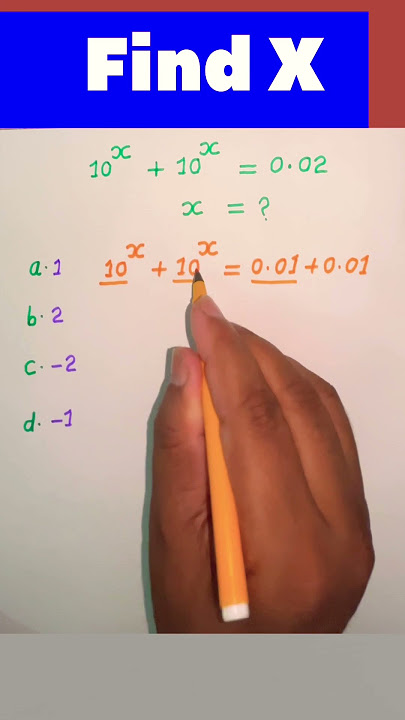 Find X
10^x + 10^x = 0.02
x = ?
10^x + 10^x = 0.01 + 0.01
a. 1
b. 2
c. -2
d. -1